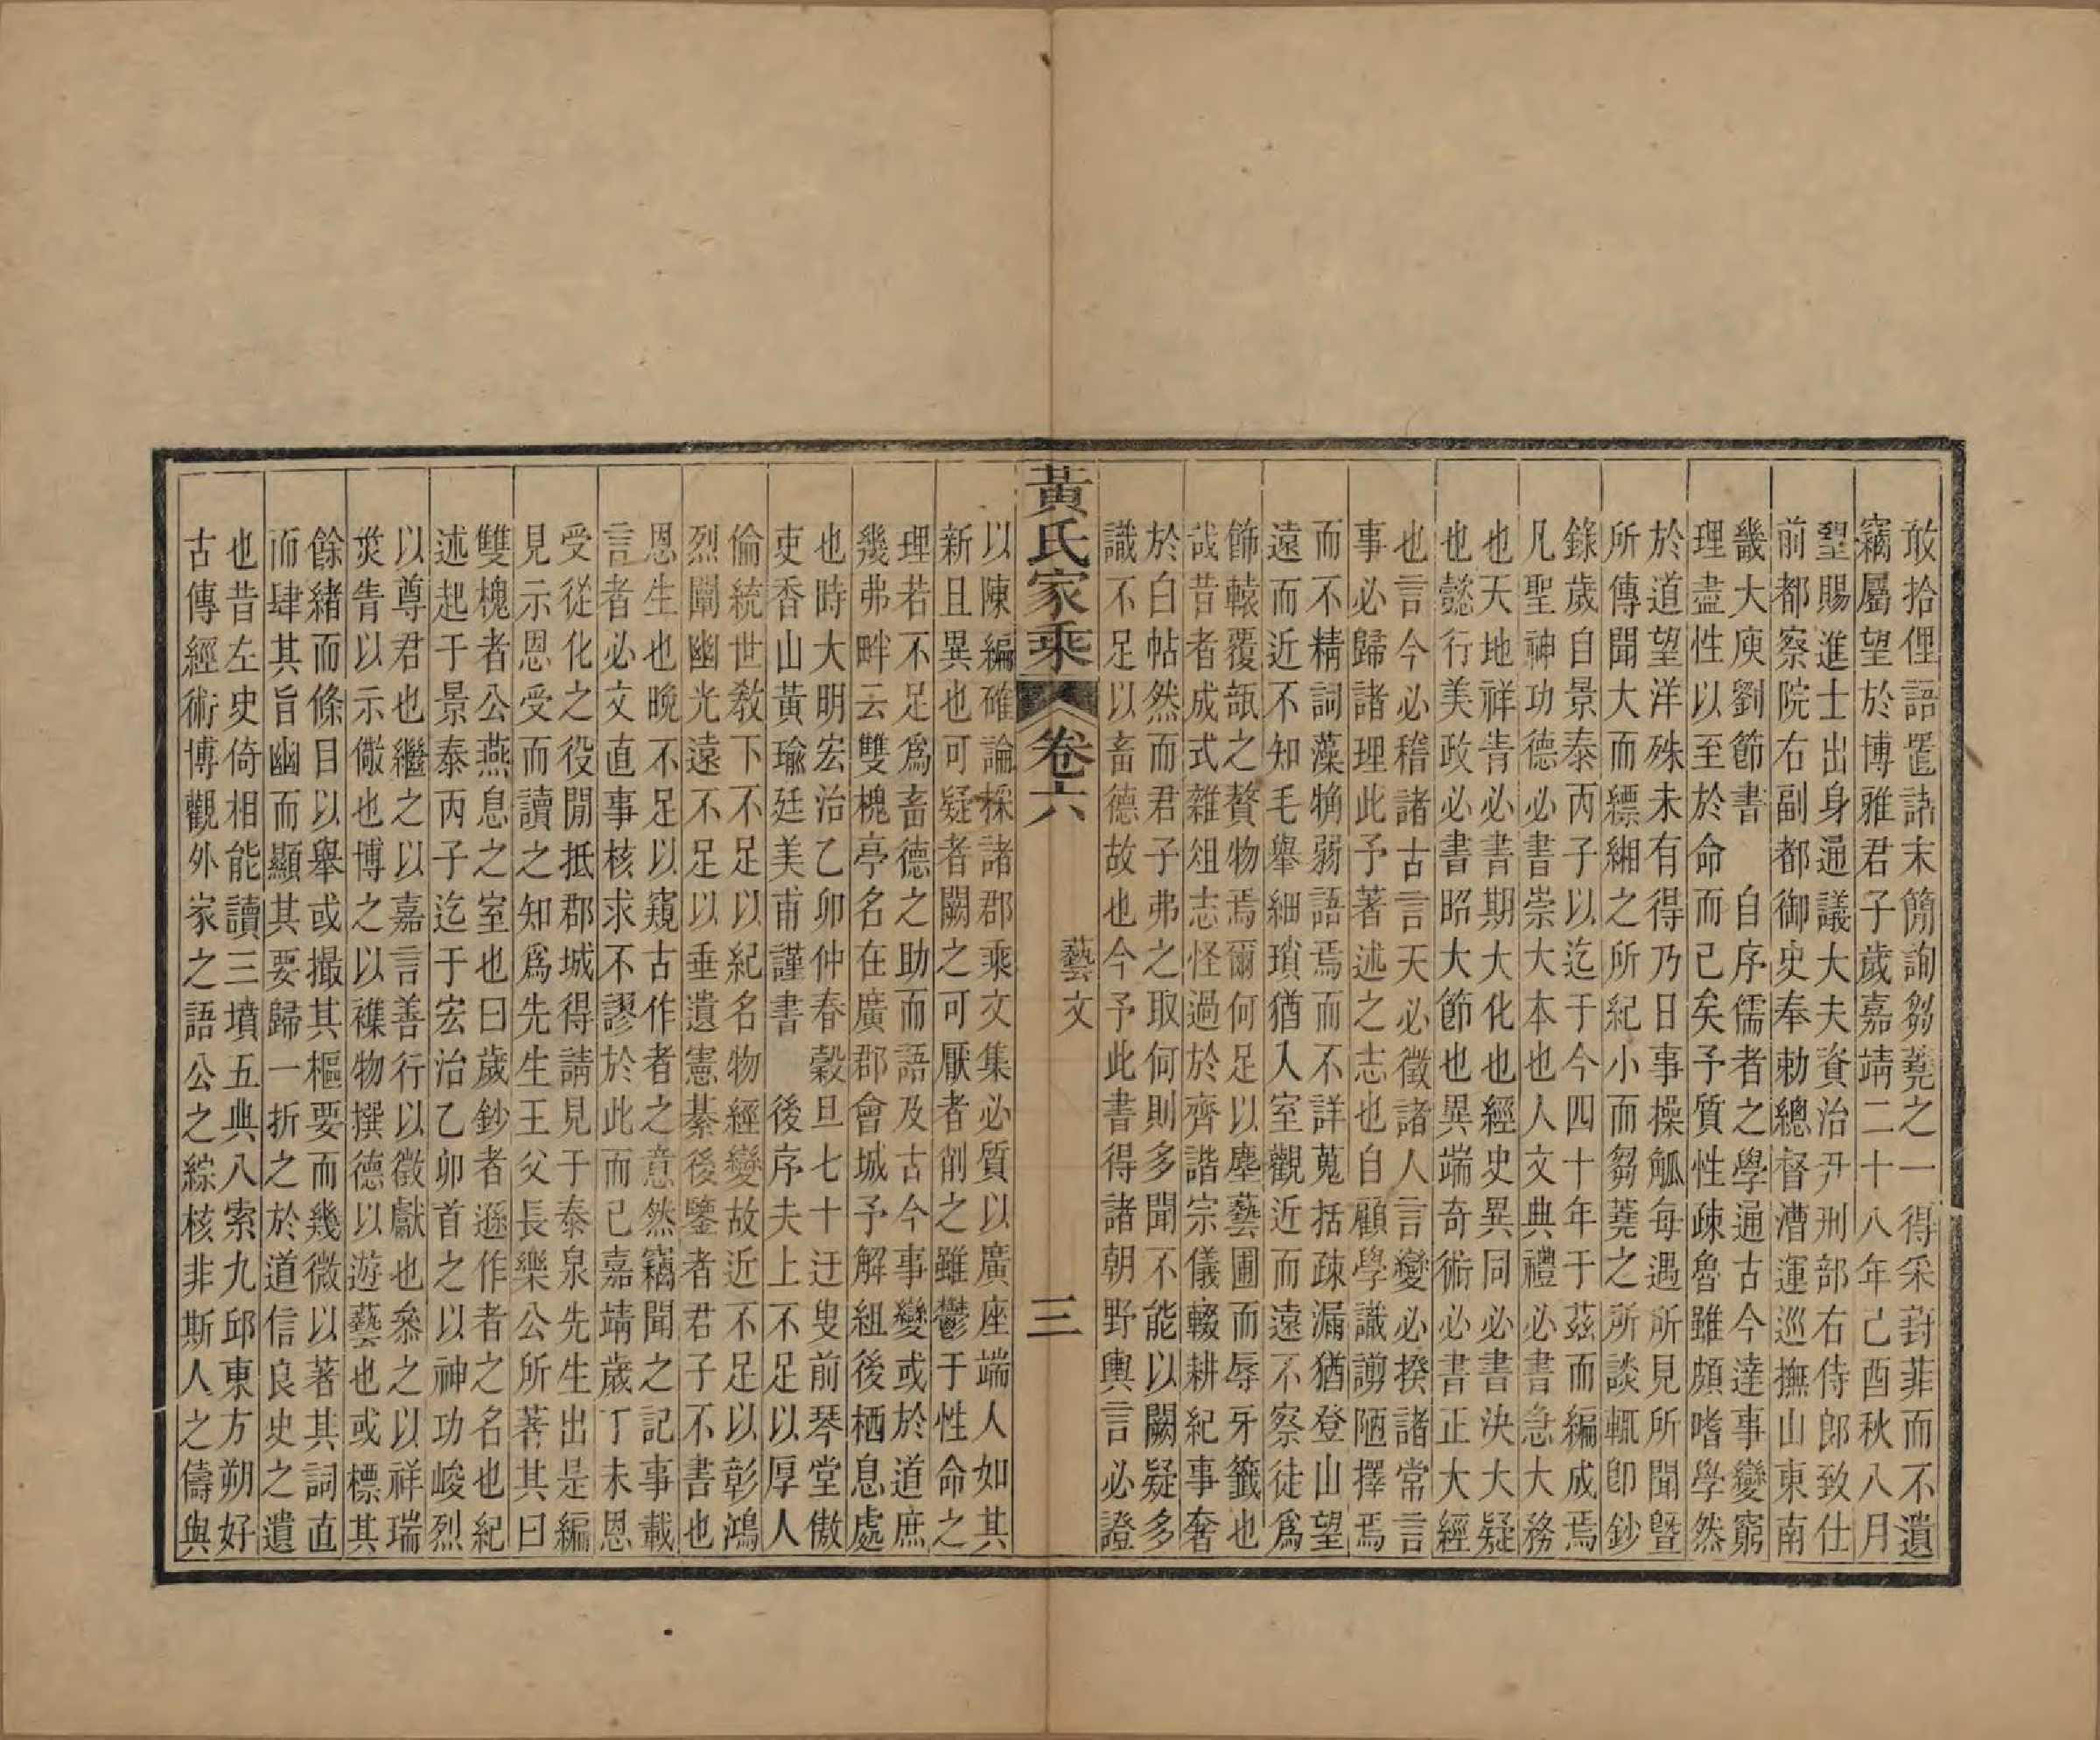 敢拾俚語置諸末簡詢芻蕘之一得采葑菲而不遺
竊屬望於博雅君子歲嘉靖二十八年己酉秋八月
望賜進士出身通議大夫資治尹刑部右侍郎致仕
前都察院右副都御史奉勅總督漕運巡撫山東南
畿大庾劉節書　自序儒者之學通古今達事變窮
理盡性以至於命而已矣予質性疎魯雖頗嗜學然
於道望洋殊未有得乃日事操觚每遇所見所聞暨
所傳聞大而縹緗之所紀小而芻蕘之所談輒卽鈔
錄歲自景泰丙子以迄于今四十年于茲而編成焉
凡聖神功德必書崇大本也人文典禮必書急大務
也天地祥眚必書期大化也經史異同必書決大疑
也懿行美政必書昭大節也異端奇術必書正大經
也言今必稽諸古言天必徵諸人言變必揆諸常言
事必歸諸理此予著述之志也自顧學識謭陋擇焉
而不精詞藻觕弱語焉而不詳蒐括疎漏猶登山望
遠而近不知毛舉細瑣猶入室觀近而遠不察徒爲
飾轅覆瓿之贅物焉爾何足以塵藝圃而辱牙籤也
哉昔者成式雜俎志怪過於齊諧宗儀輟耕紀事奢
於白帖然而君子弗之取何則多聞不能以闕疑多
識不足以畜德故也今予此書得諸朝野輿言必證
黃氏家乘　卷六　藝文　三
以陳編確論採諸郡乘文集必質以廣座端人如其
新且異也可疑者闕之可厭者削之雖鬱于性命之
理若不足爲畜德之助而語及古今事變或於道庶
幾弗畔云雙槐亭名在廣郡會城予解組後栖息處
也時大明宏治乙卯仲春穀旦七十迂叟前琴堂傲
吏香山黃瑜廷美甫謹書　後序夫上不足以厚人
倫統世敎下不足以紀名物經變故近不足以彰鴻
烈闡幽光遠不足以垂遺憲綦後鑒者君子不書也
恩生也晚不足以窺古作者之意然竊聞之記事載
言者必文直事核求不謬於此而已嘉靖歲丁未恩
受從化之役閒抵郡城得請見于泰泉先生出是編
見示恩受而讀之知爲先生王父長樂公所著其曰
雙槐者公燕息之室也曰歲鈔者遜作者之名也紀
述起于景泰丙子迄于宏治乙卯首之以神功峻烈
以尊君也繼之以嘉言善行以徵獻也叅之以祥瑞
烖眚以示儆也博之以襍物撰德以遊藝也或標其
餘緒而條目以舉或撮其樞要而幾微以著其詞直
而肆其旨幽而顯其要歸一折之於道信良史之遺
也昔左史倚相能讀三墳五典八索九邱東方朔好
古傳經術博觀外家之語公之綜核非斯人之儔與